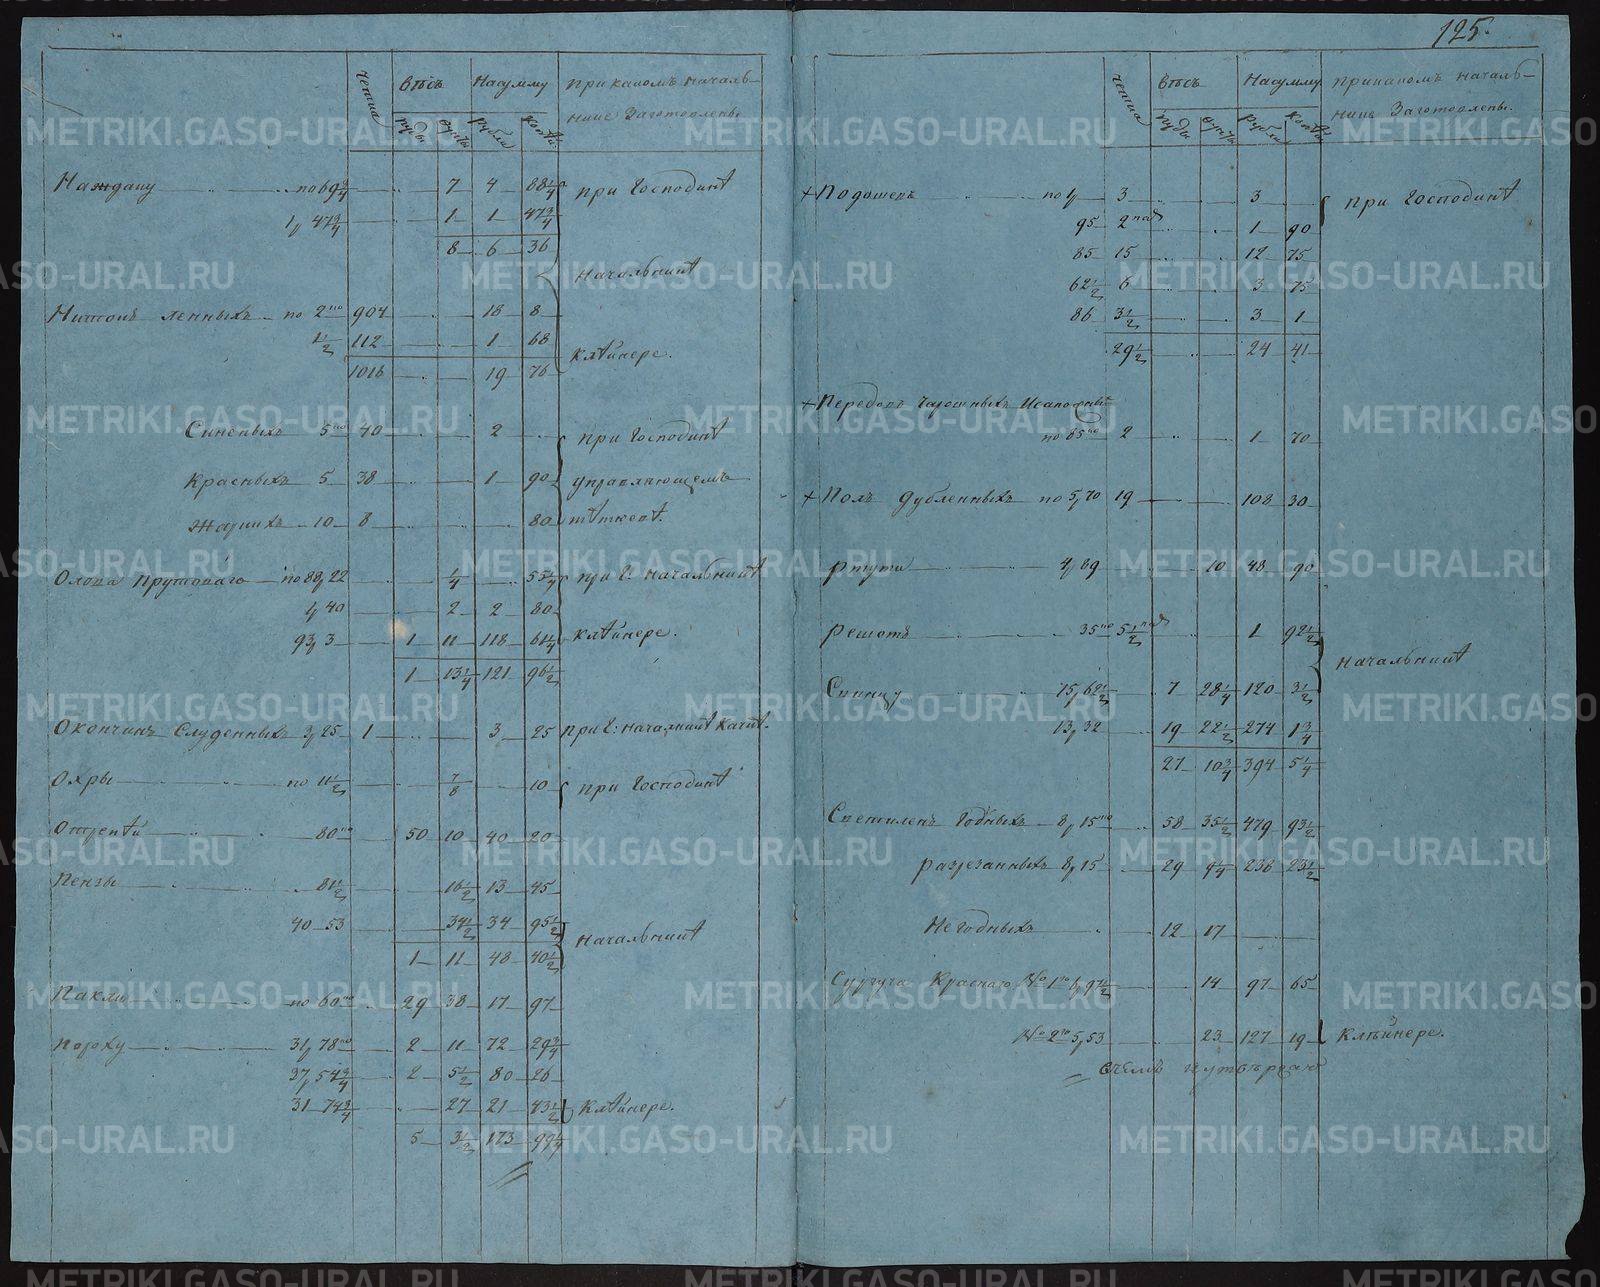 125.
числа
Вѣсъ
На сумму
При каномъ началь-
пуды
фунты
рубли
копѣй:
нике Заготовлены
Наждану по 69 3/4 7 4 88 1/4 при Господинѣ
1, 47 3/4 1 1 47 3/4
8 6 36
Начальникѣ
Нитокъ ленныхъ по 2 по 904 18 8
1 1/2 112 1 68 Клѣйнере.
1016 19 76
Синеныхъ 5 по 40 2 при Господинѣ
Красныхъ 5 38 1 90 управляющемъ
Жаркихъ 10 8 80
Олова Прутоваго по 88, 22 1/4 55 1/4 при Г. Начальникѣ
1, 40 2 2 80
93, 3 1 11 118 61 1/4 Клѣйнере.
1 13 1/4 121 96 1/2
Окончинъ Слуденныхъ 3, 25 1 3 25 при Г. Началникѣ
Охры по 11 1/2 7/8 10 при Господинѣ
Отрепѣй 80 по 50 10 40 20
Пензы 81 1/2 16 1/2 13 45
40 53 34 1/2 34 95 1/2 Начальникѣ
1 11 48 40 1/2
Пакли по 60 по 29 38 17 97
Пороху 31, 78 по 2 11 72 29 3/4
37, 54 3/4 2 5 1/2 80 26
31 74 3/4 27 21 43 1/2 Клѣйнере.
5 3 1/2 173 99 1/4
числа
Вѣсъ
На сумму
При каномъ началь-
пуды
фунты
рубли
копѣй
нике Заготовлены.
+ Подошевъ по 1, 3 3 при Господинѣ
95 2 пар 1 90
85 15 12 75
62 1/2 6 3 75
86 3 1/2 3 1
29 1/2 24 41
+ Передовъ Чарошныхъ
по 85 по 2 1 70
+ Полъ дубленныхъ по 5, 70 19 108 30
Ртути 4, 89 10 48 90
Решотъ 35 по 5 1/2 1 92 1/2
Начальникѣ
Свинцу 15, 62 1/2 7 28 1/4 120 3 1/2
13, 32 19 22 1/2 274 1 3/4
27 10 3/4 394 5 1/4
Светиленъ Годныхъ 8, 15 по 58 35 1/2 479 93 1/2
разрезанныхъ 8, 15 29 9 1/4 238 23 1/2
Негодныхъ 12 17
Сургуча Краснаго № 1 го 6, 97 1/2 14 97 65
№ 2 го 5, 53 23 127 19 Клѣйнере.
METRIKI.GASO-URAL.RU